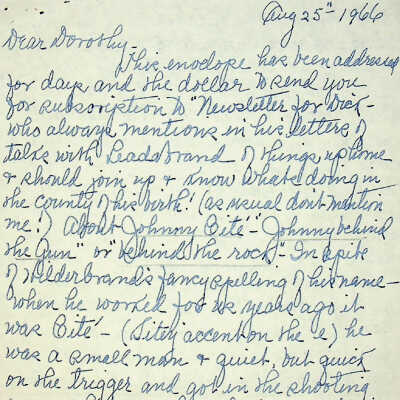 Aug 25th 1966
Dear Dorothy-
This envelope has been addressed
for days and the dollar to send you
for subscription to "Newsletter for Dick-
who always mentions in his letters of
talks with Leadabrand of things up home
& should join up & know whats doing in
the county of his birth! (as usual dont mention
me!) About Johnny Cité-"Johnny behind
the Gun" or "behind the rock". In spite
of Wilderbrands fancy spelling of his name-
when he worked for us years ago it
was Cité- (Sitey accent on the e) he
was a small man & quiet, but quick
on the trigger and got in the shooting